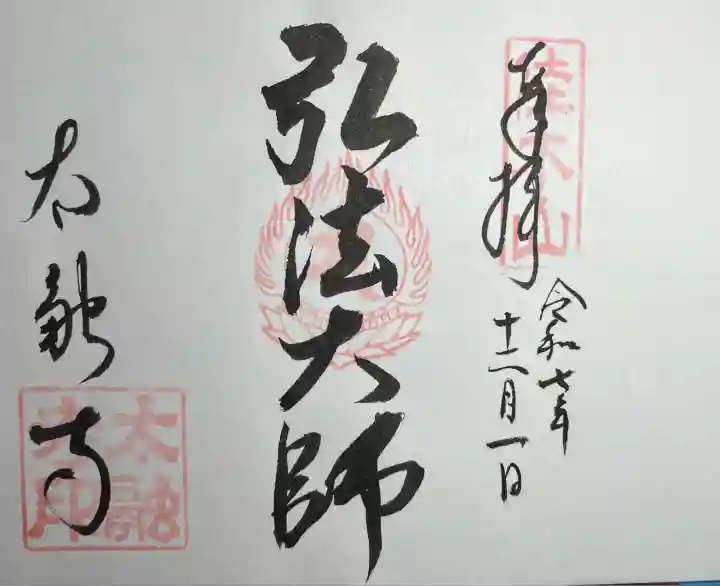 奉拝
令和七年
十二月一日
弘法大師
太融寺
佳木山
太融寺印